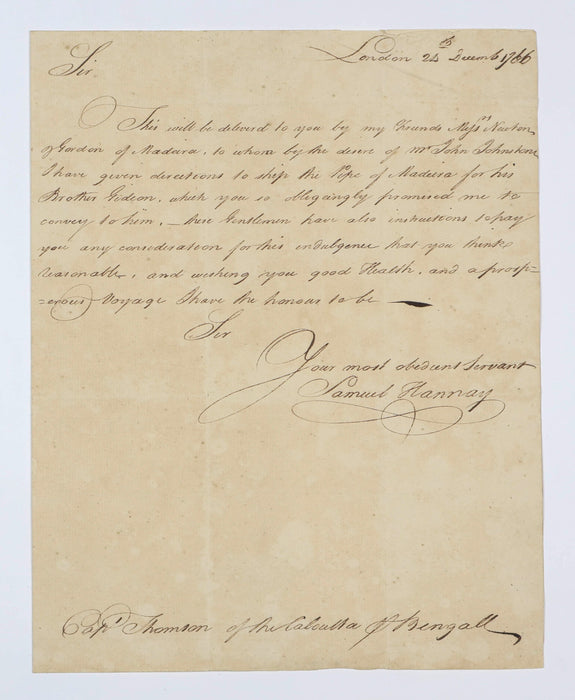 London 24th Decemb 1766
Sir
This will be deliverd to you by my Friends Messrs Newton
& Gordon of Madeira, to whom by the desire of Mr John Johnstone
I have given directions to ship the Pipe of Madeira for his
Brother Gideon, which you so obligingly promised me to
convey to him, — these Gentlemen have also instructions to pay
you any consideration for this indulgence that you think
reasonable, and wishing you good Health, and a prosp=
=erous Voyage I have the honour to be —
Sir
Your most obedient Servant
Samuel Hannay
Capt Thomson of the Calcutta p Bengall